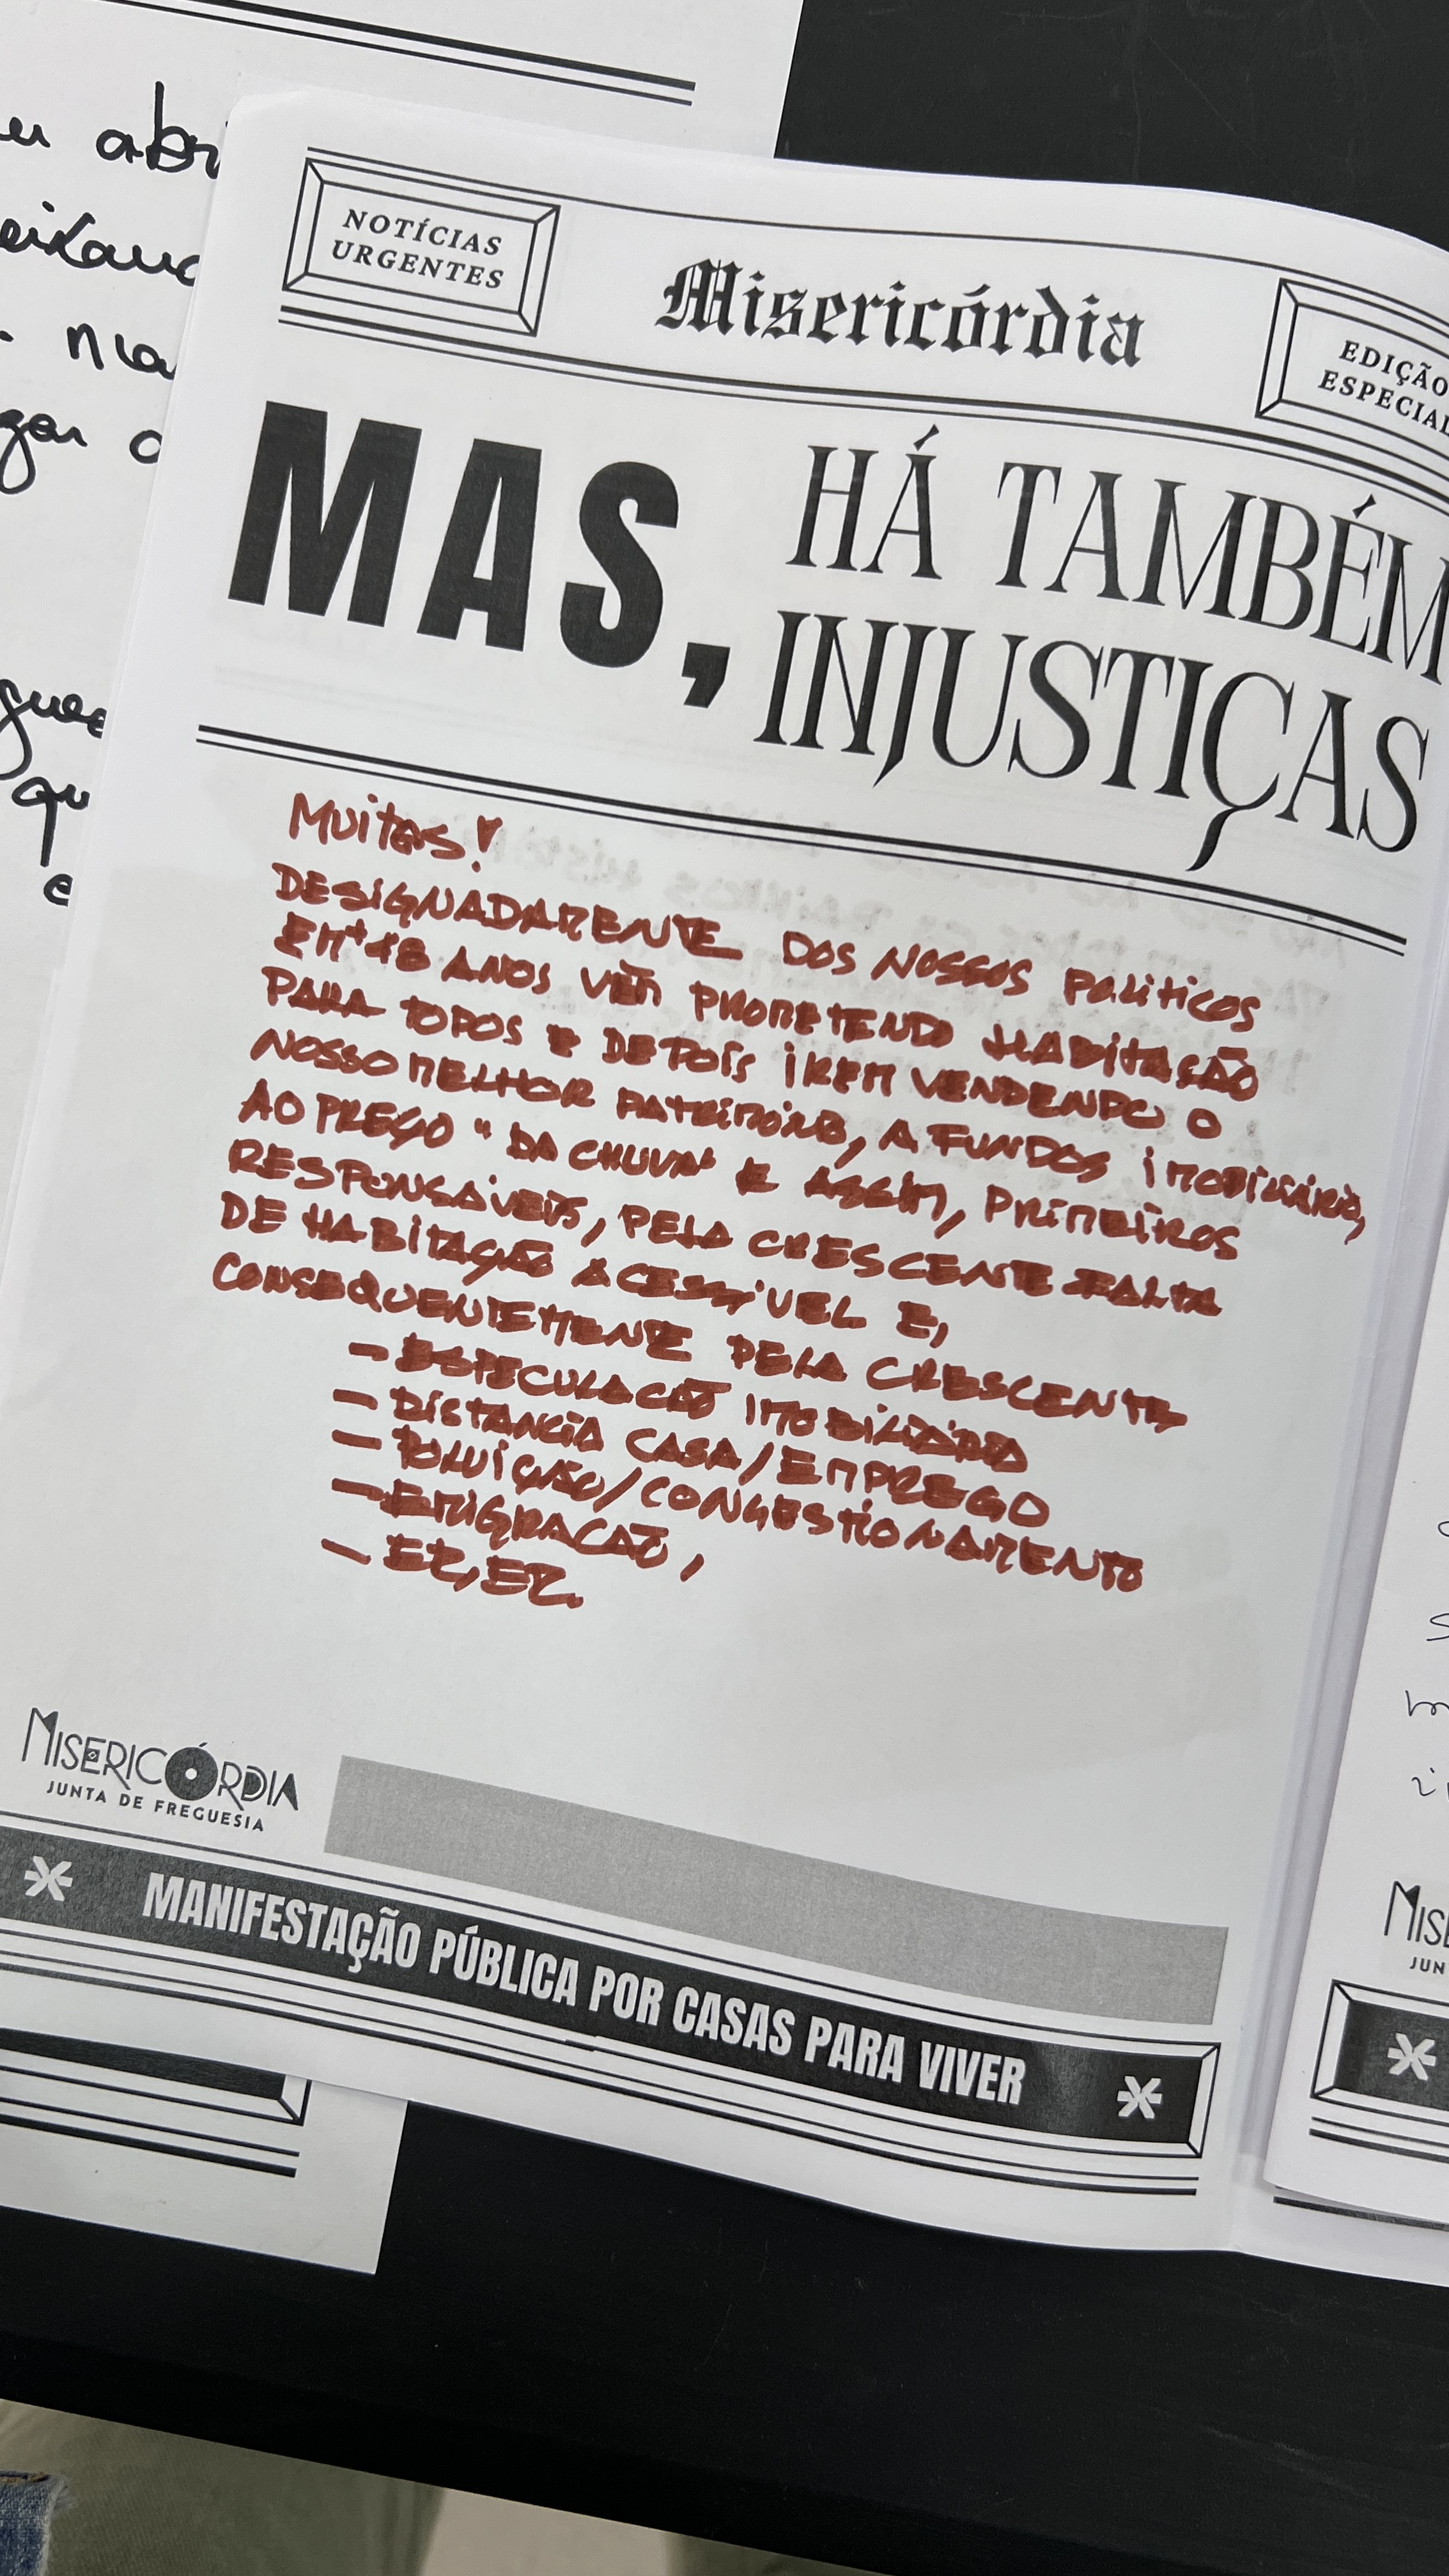 NOTÍCIAS
URGENTES
Misericórdia
EDIÇÃO
ESPECIAL
MAS, HÁ TAMBÉM
INJUSTIÇAS
Muitas!
DESIGNADAMENTE DOS NOSSOS POLITICOS
EM +48 ANOS VÊM PROMETENDO HABITAÇÃO
PARA TODOS E DEPOIS IREM VENDENDO O
NOSSO MELHOR PATRIMÓNIO, A FUNDOS IMOBILIÁRIO,
AO PREÇO "DA CHUVA" E ASSIM, PRIMEIROS
RESPONSÁVEIS, PELA CRESCENTE FALTA
DE HABITAÇÃO ACESSÍVEL E,
CONSEQUENTEMENTE PELA CRESCENTE
- ESPECULAÇÃO IMOBILIÁRIA
- DISTANCIA CASA/EMPREGO
- POLUIÇÃO/CONGESTIONAMENTO
- EMIGRACÃO,
MISERICÓRDIA
JUNTA DE FREGUESIA
MANIFESTAÇÃO PÚBLICA POR CASAS PARA VIVER